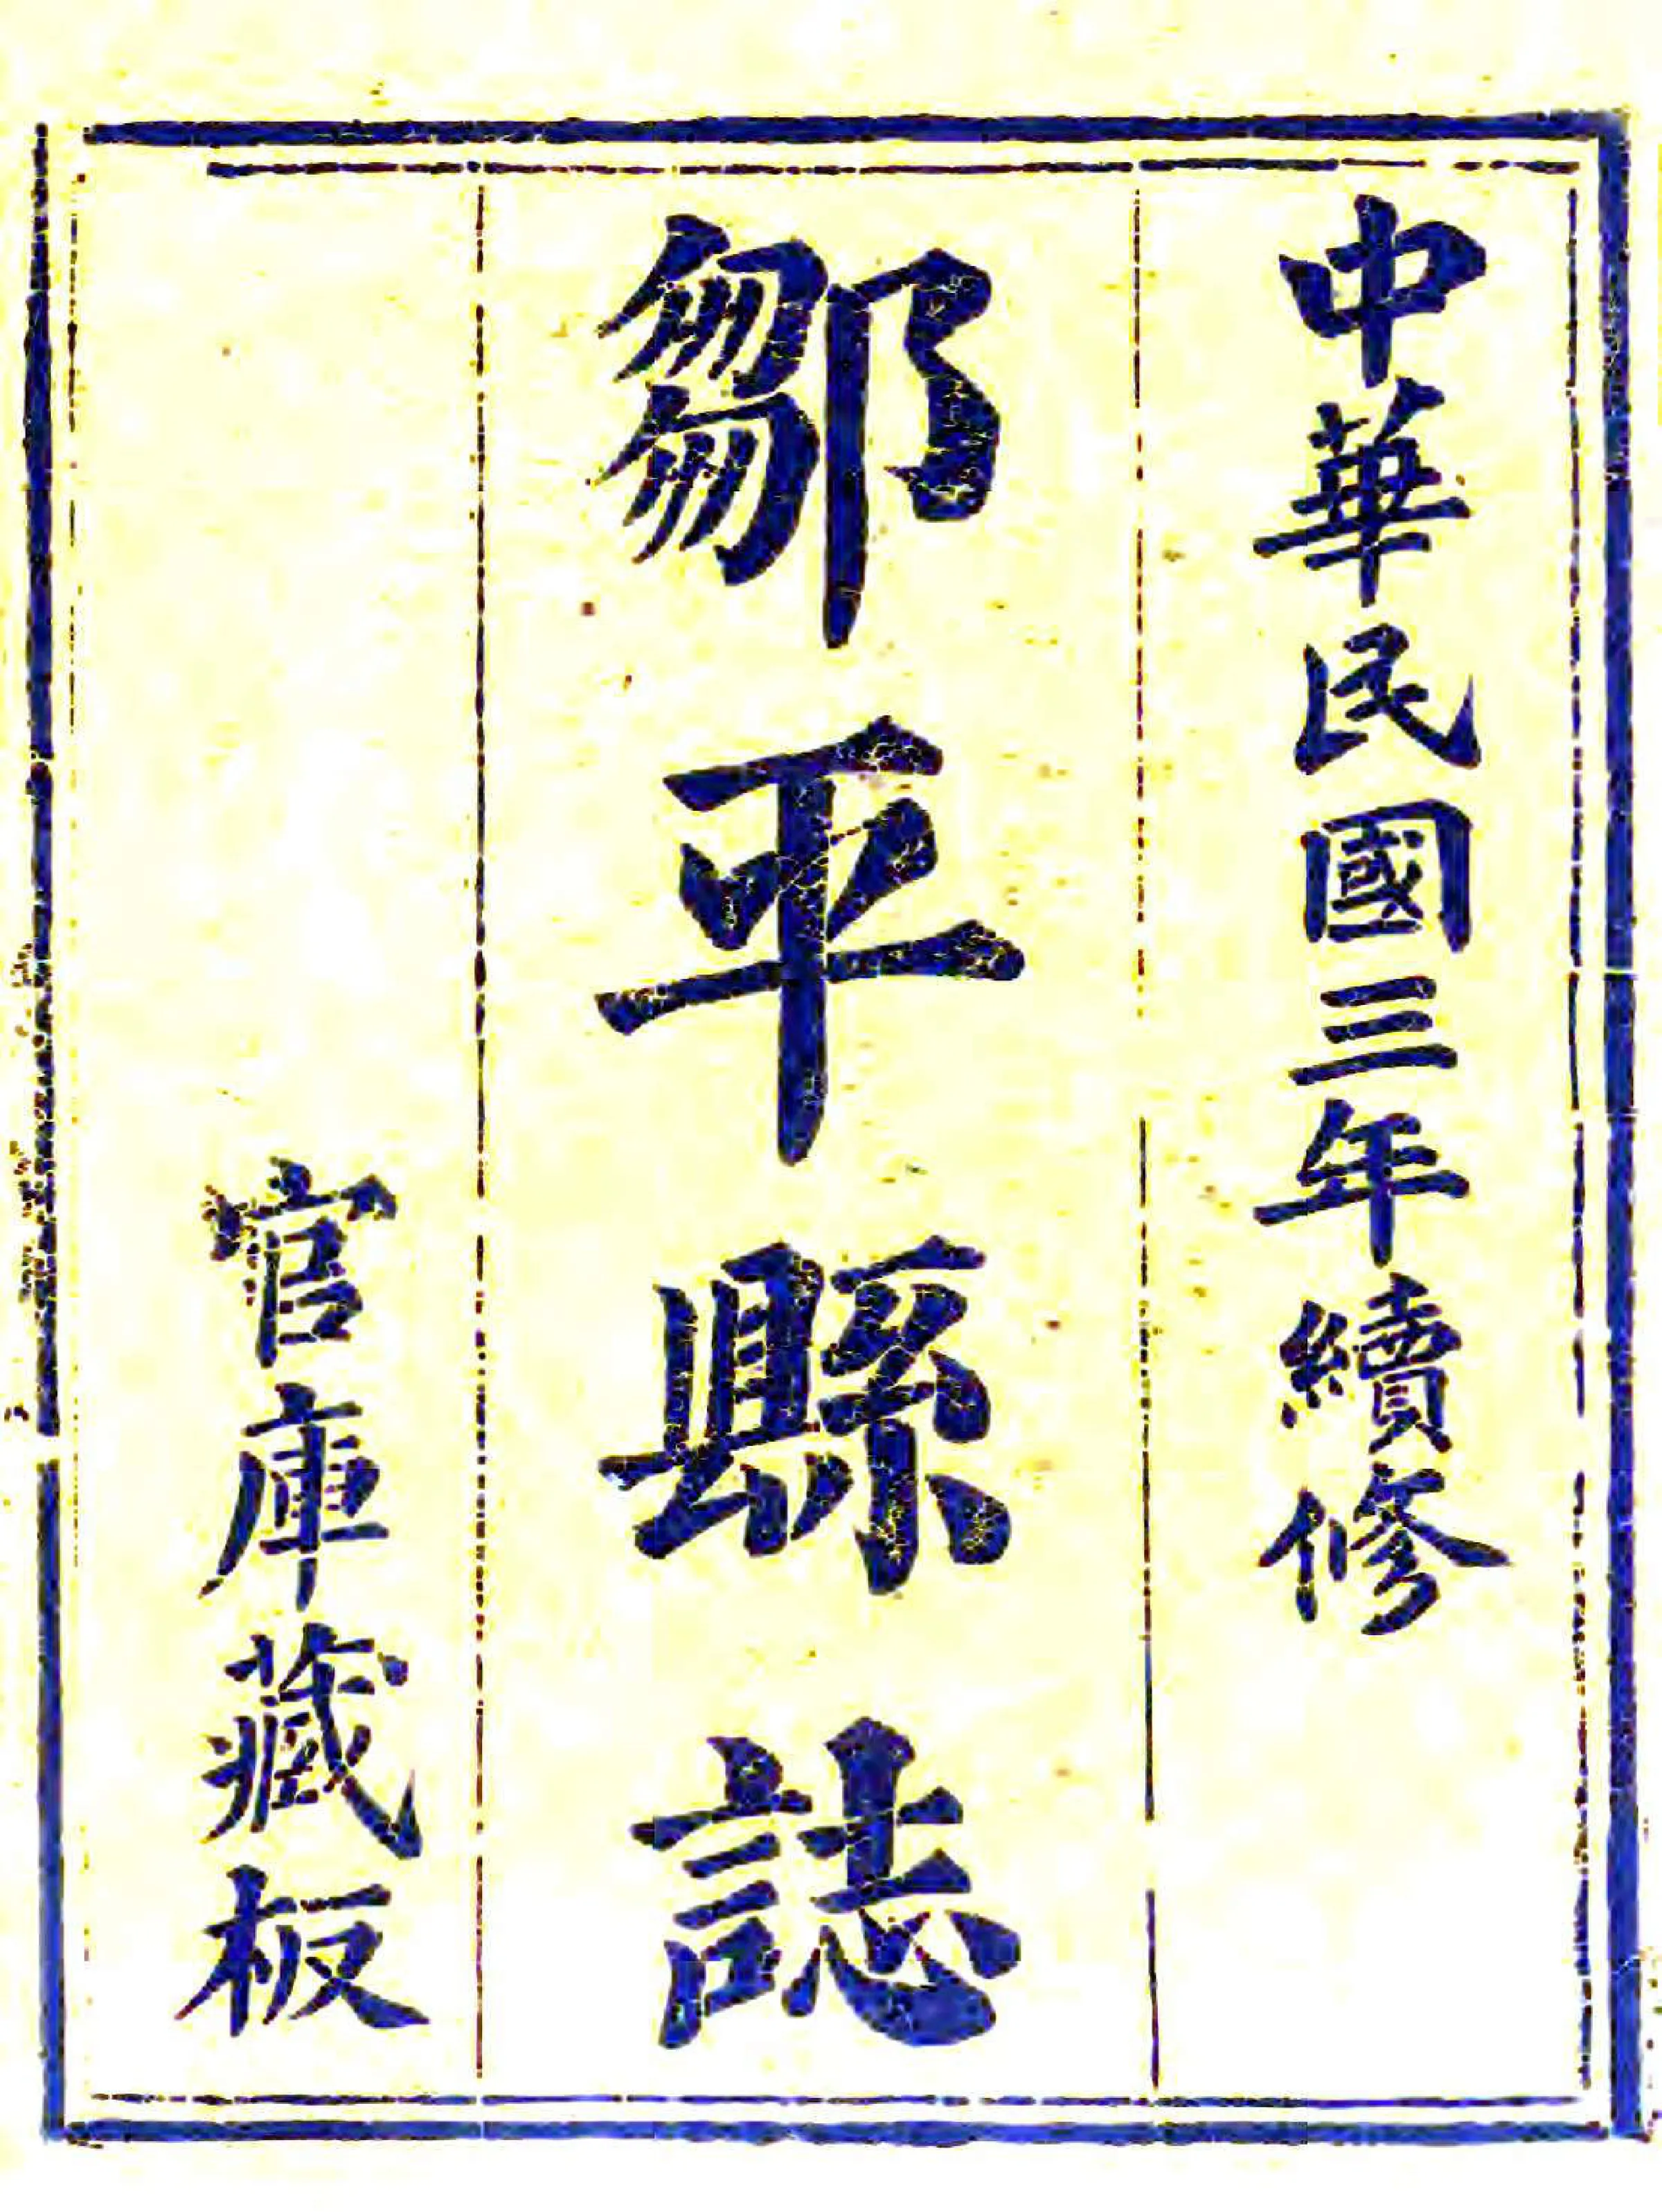 中華民國三年續修
鄒平縣誌
官庫藏板